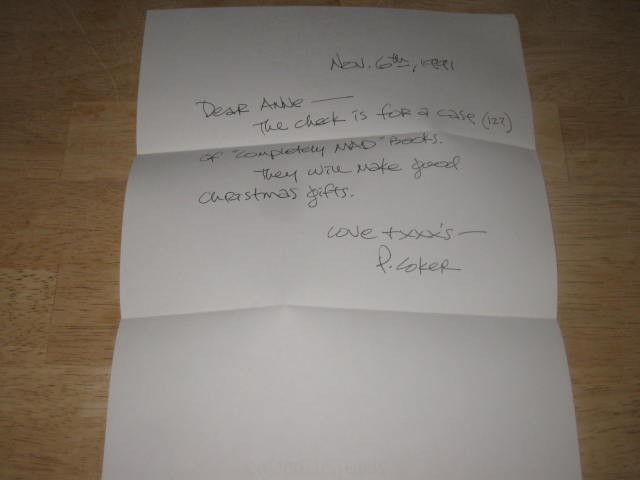 Nov. 6th, 1991
Dear Anne —
The check is for a case (12?)
of "Completely MAD" Books.
They will make good
Christmas gifts.
Love + xxx's —
P. Coker